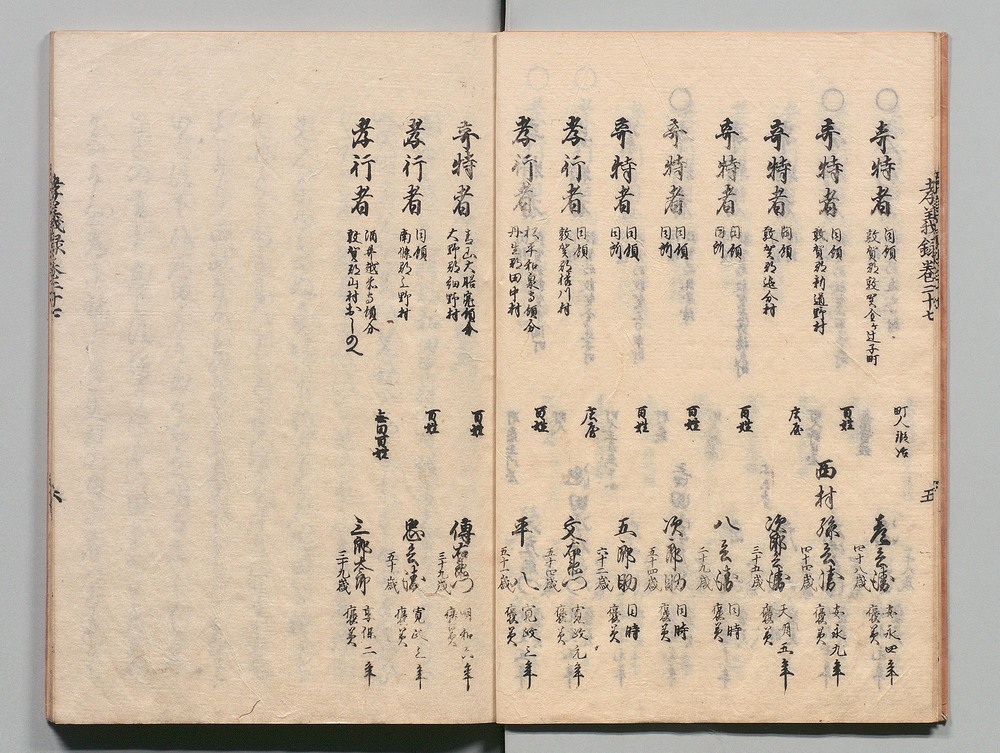 孝義録巻二十七
五
○
奇特者
同領
敦賀郡敦賀金ケ辻子町
町人鍛冶
彦兵衛
四十八歳
安永四年
褒美
○
奇特者
同領
敦賀郡新道野村
百姓
西村孫兵衛
四十四歳
安永九年
褒美
奇特者
同領
敦賀郡追分村
庄屋
次郎兵衛
三十五歳
天明五年
褒美
奇特者
同領
同所
百姓
八兵衛
二十九歳
同時
褒美
○
奇特者
同領
同所
百姓
次郎助
五十四歳
同時
褒美
奇特者
同領
同所
百姓
五郎助
六十二歳
同時
褒美
孝行者
同領
敦賀郡
庄屋
文右衛門
五十四歳
寛政元年
褒美
孝行者
松平和泉守領分
丹生郡田中村
百姓
平八
五十一歳
寛政三年
褒美
奇特者
青山大膳亮領分
大野郡細野村
百姓
傳右衛門
三十九歳
明和六年
褒美
孝行者
同領
南条郡上野村
百姓
忠兵衛
五十歳
寛政三年
褒美
孝行者
酒井越前守領分
敦賀郡山村
無田百姓
三郎太郎
三十九歳
享保二年
褒美
孝義録巻二十七
六